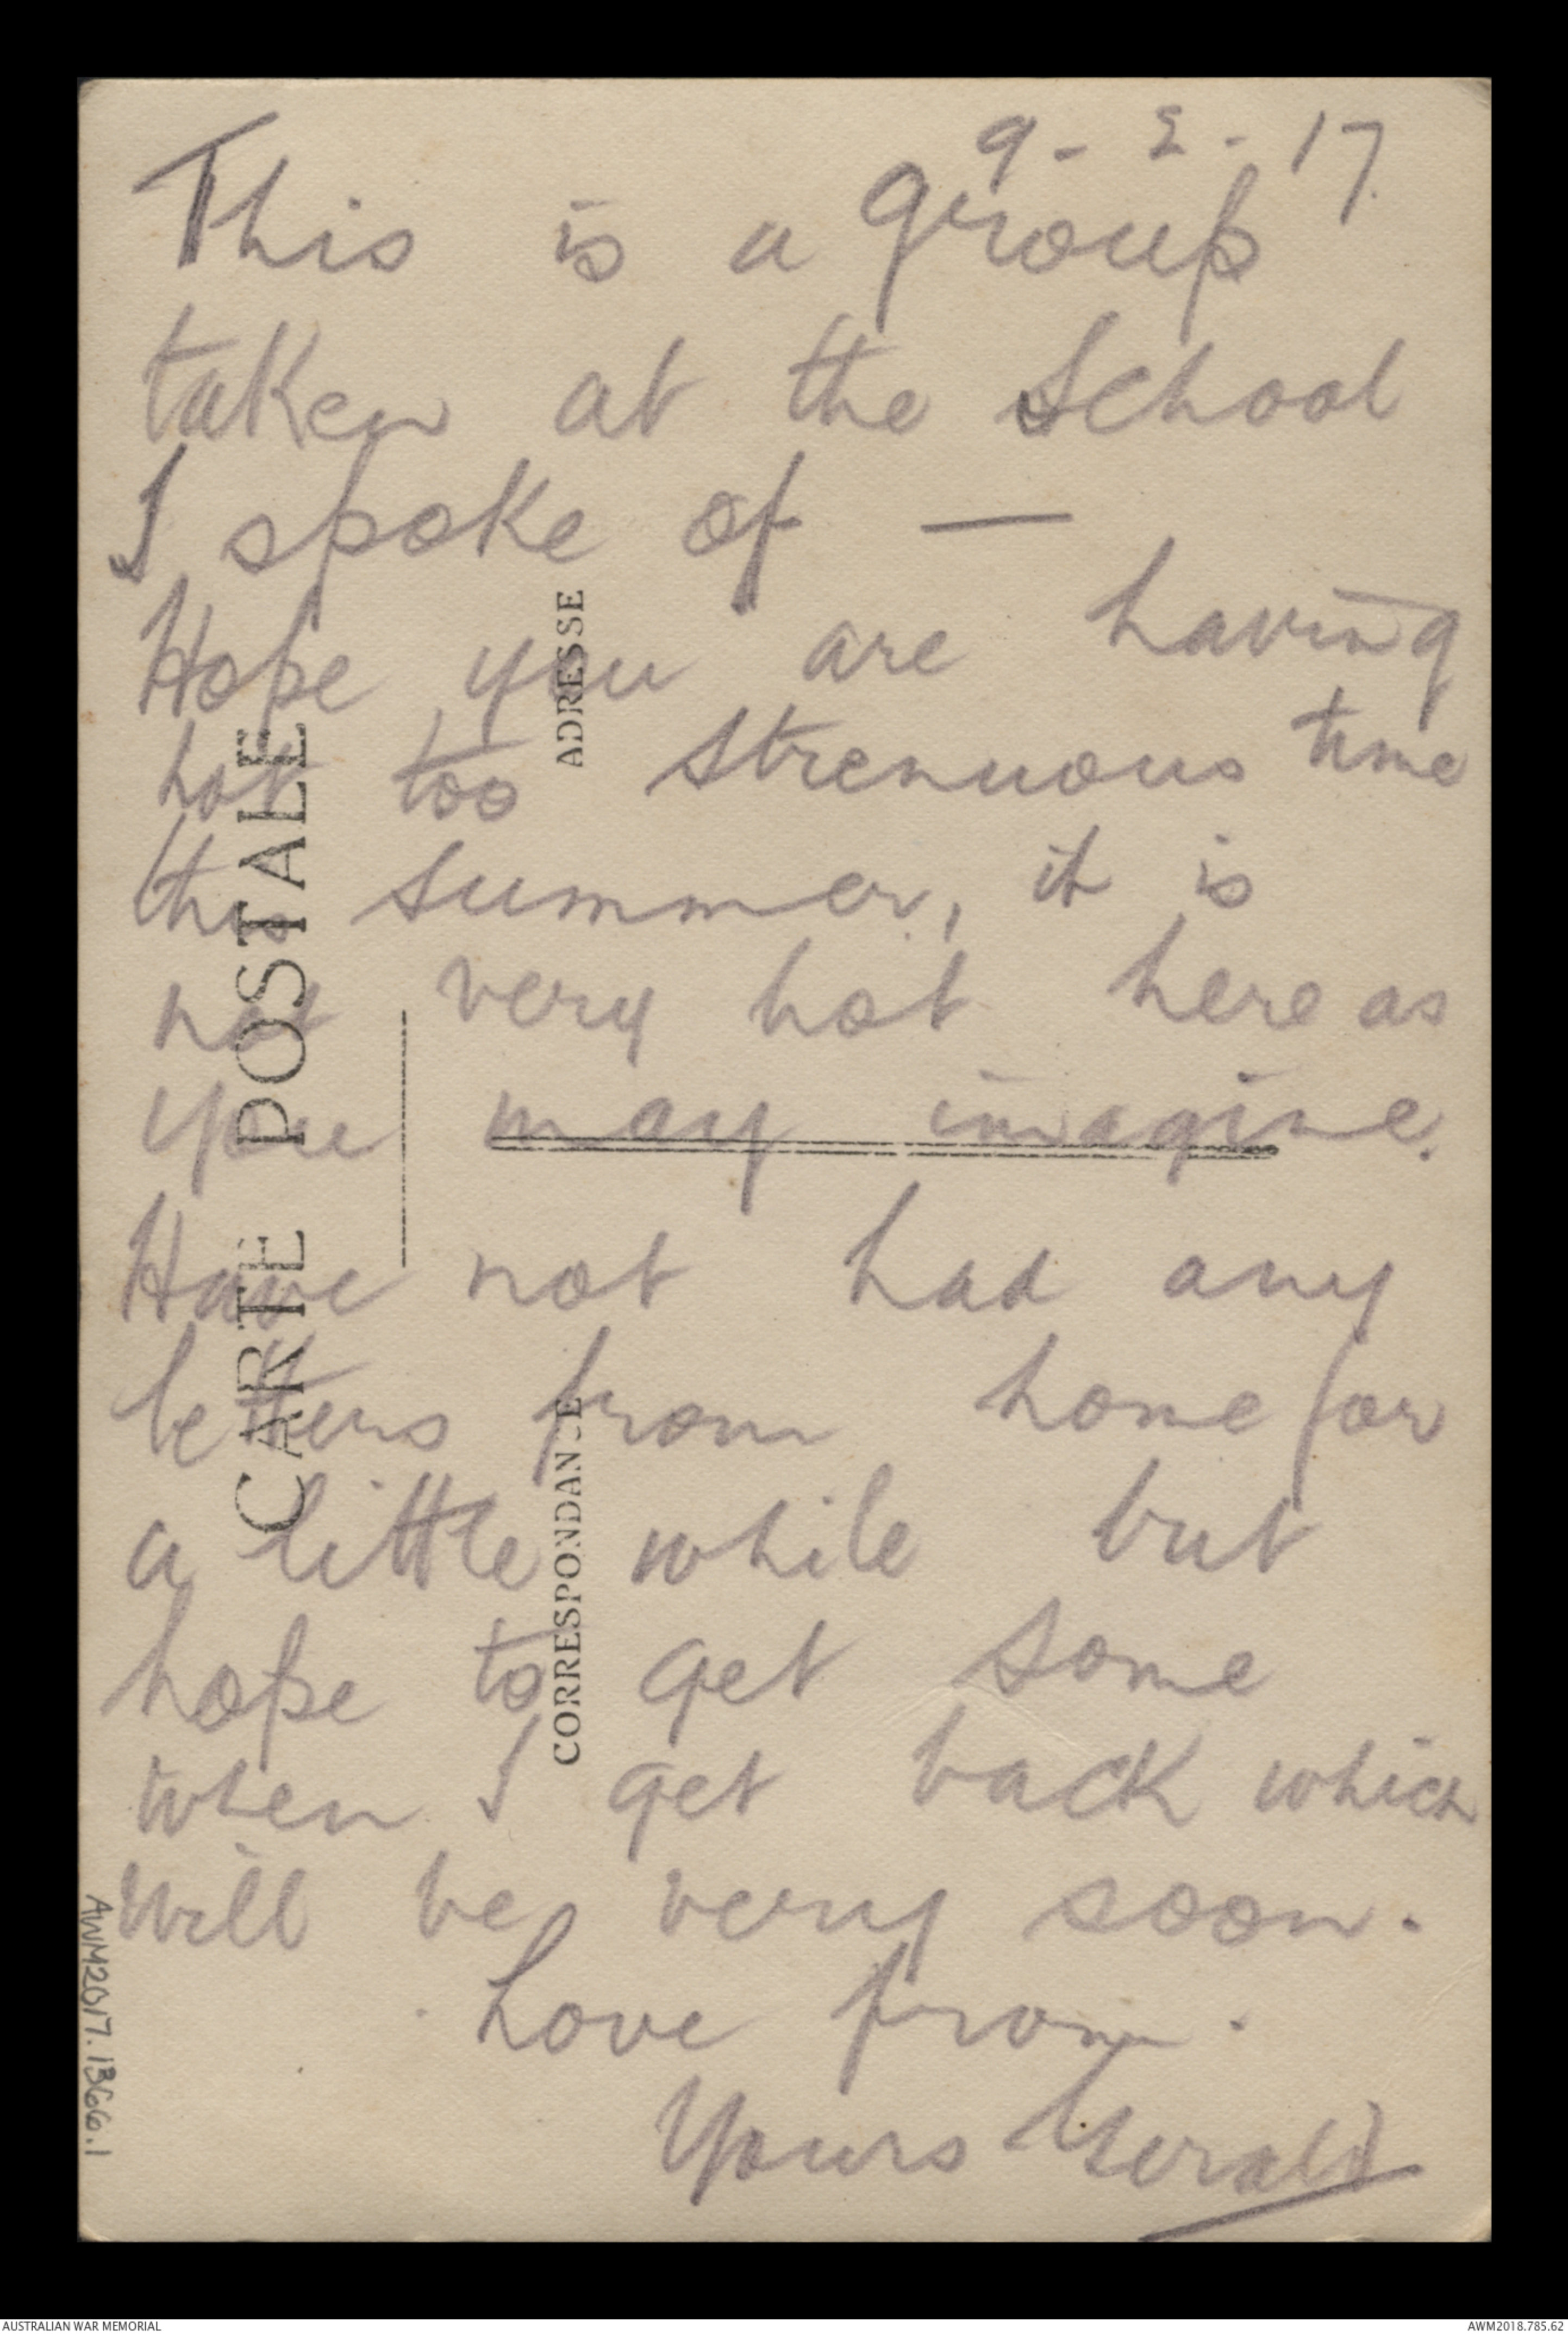 9 - 2 - 17.
This is a group
taken at the School
I spoke of —
Hope you are having
not too strenuous time
this summer, it is
not very hot here as
you may imagine.
Have not had any
letters from home for
a little while but
hope to get some
when I get back which
will be very soon.
Love from.
Yours Gerald
CARTE POSTALE
ADRESSE
CORRESPONDANCE
AWM2017.1366.1
AUSTRALIAN WAR MEMORIAL
AWM2018.785.62